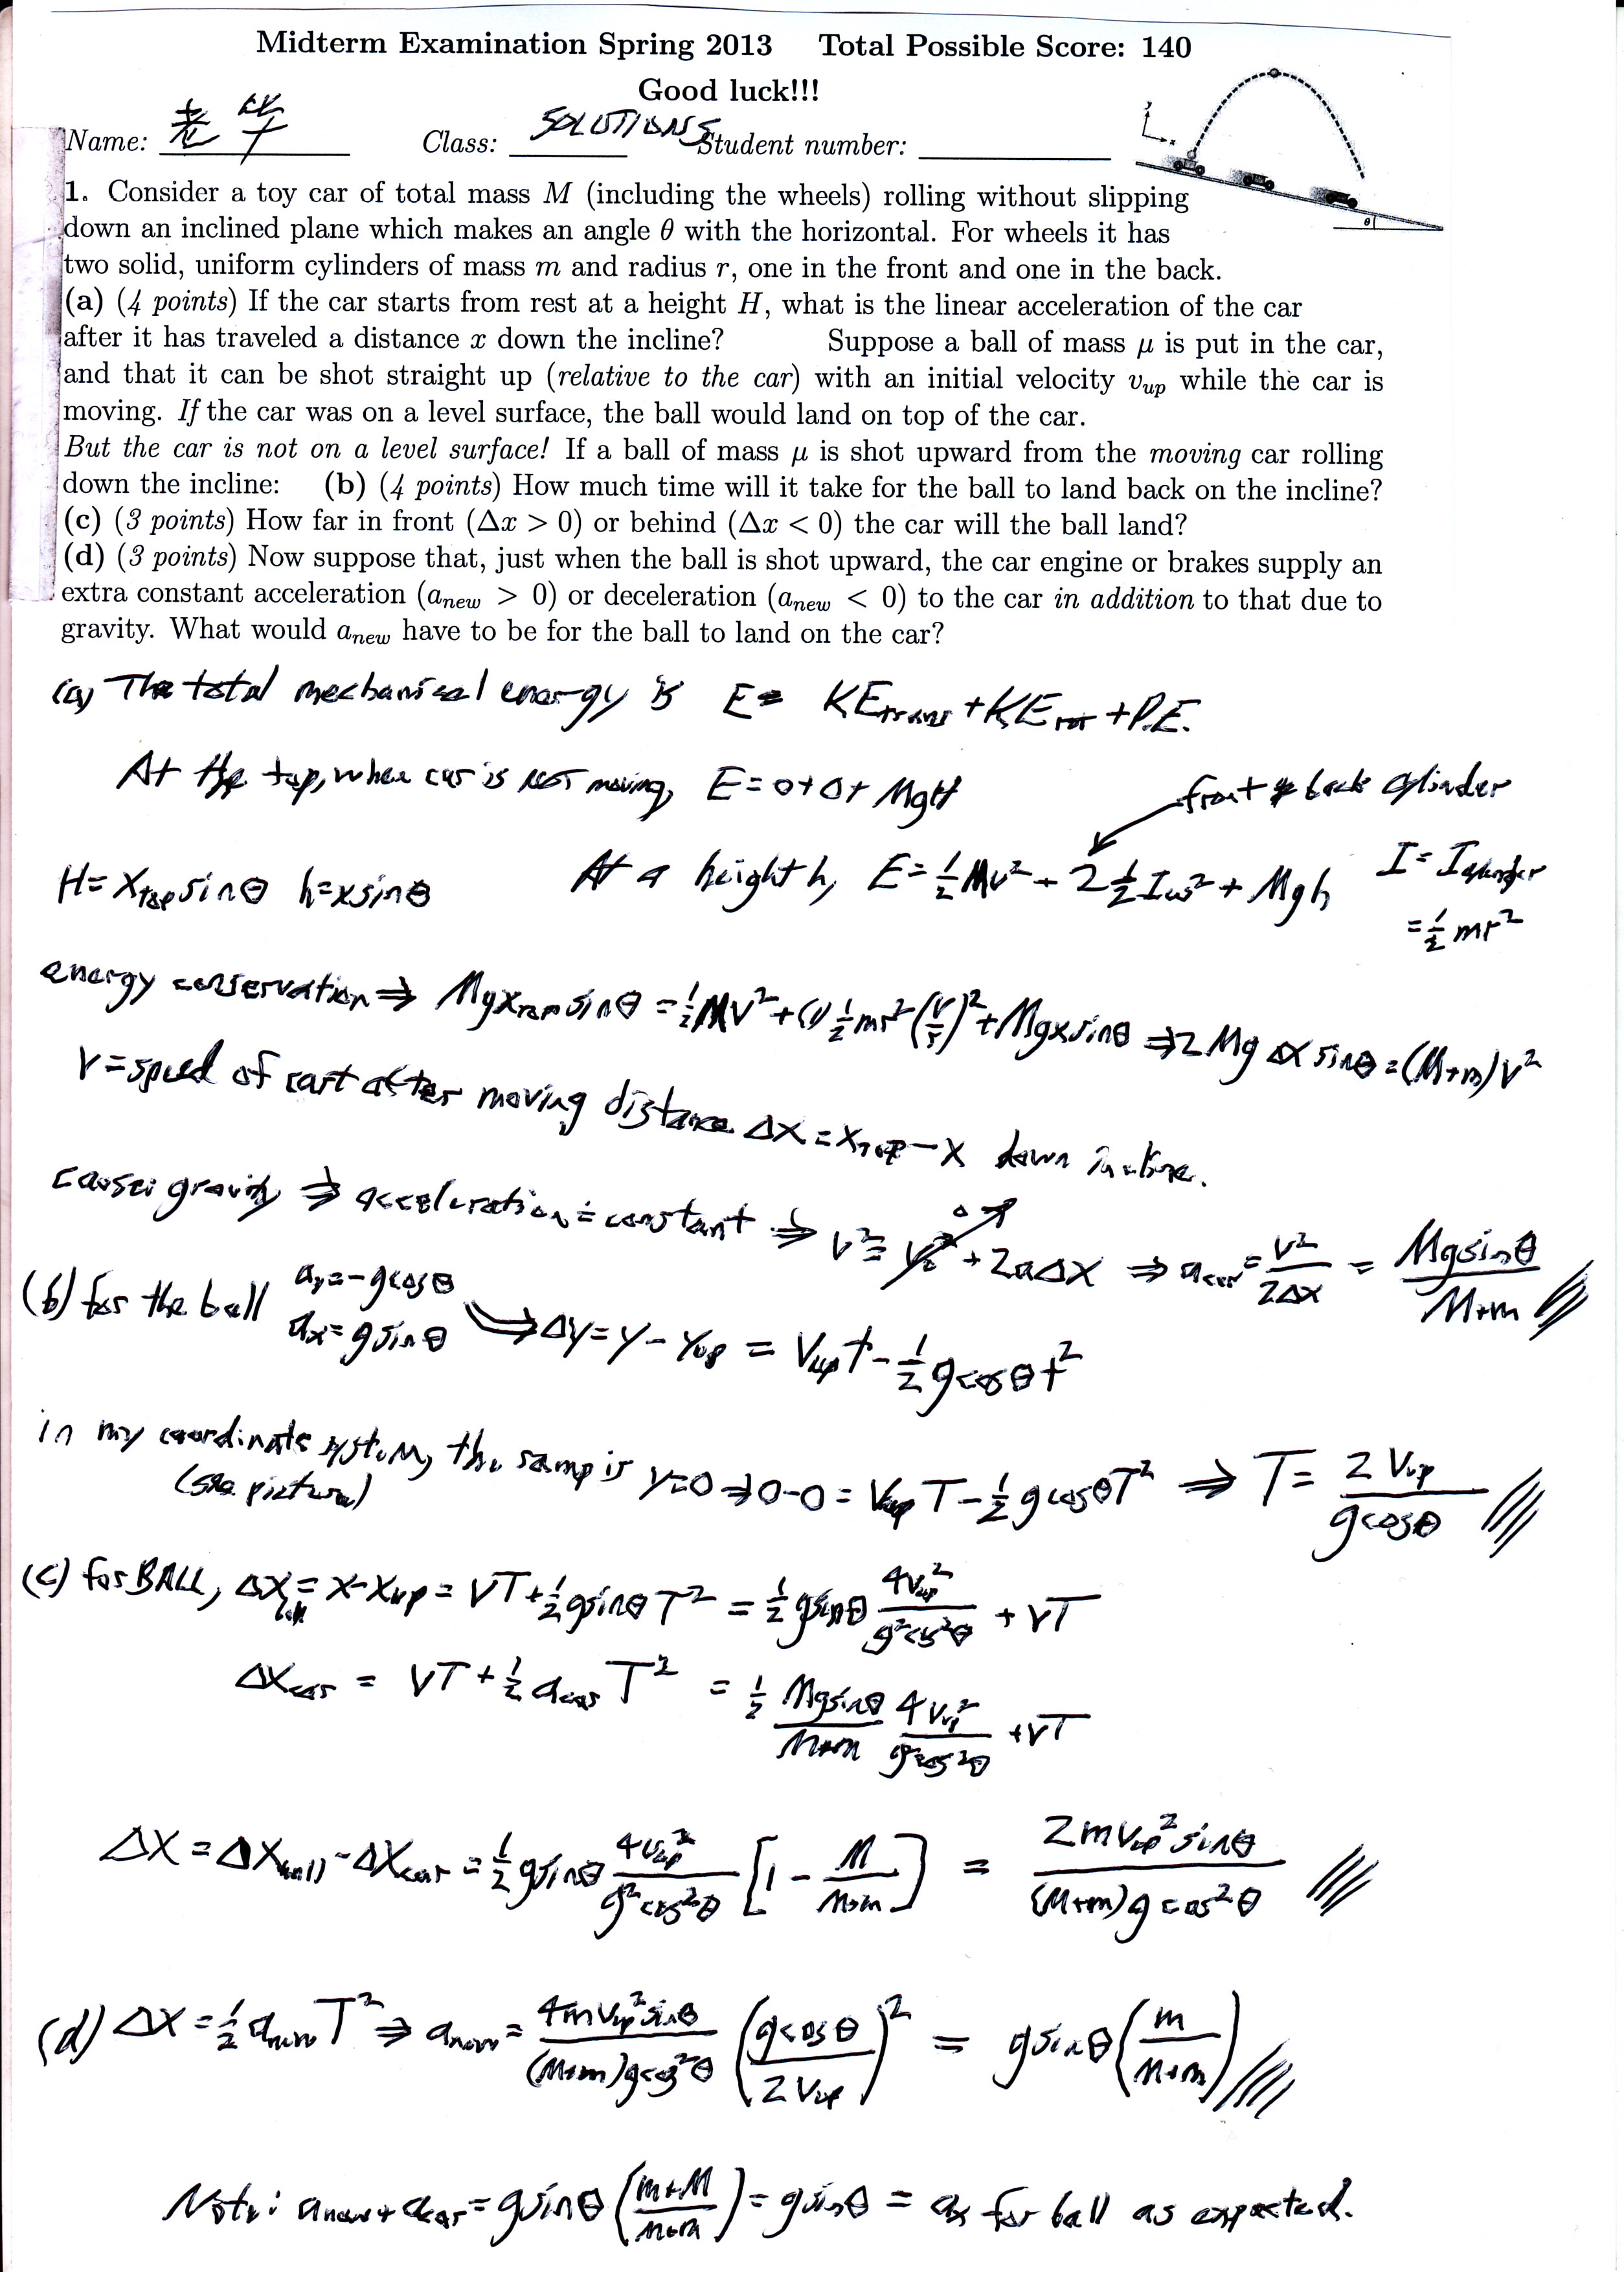 Midterm Examination Spring 2013 Total Possible Score: 140
Good luck!!!
Name: 老毕 Class: SOLUTIONS Student number:
1. Consider a toy car of total mass M (including the wheels) rolling without slipping
down an inclined plane which makes an angle θ with the horizontal. For wheels it has
two solid, uniform cylinders of mass m and radius r, one in the front and one in the back.
(a) (4 points) If the car starts from rest at a height H, what is the linear acceleration of the car
after it has traveled a distance x down the incline? Suppose a ball of mass μ is put in the car,
and that it can be shot straight up (relative to the car) with an initial velocity v_up while the car is
moving. If the car was on a level surface, the ball would land on top of the car.
But the car is not on a level surface! If a ball of mass μ is shot upward from the moving car rolling
down the incline: (b) (4 points) How much time will it take for the ball to land back on the incline?
(c) (3 points) How far in front (Δx > 0) or behind (Δx < 0) the car will the ball land?
(d) (3 points) Now suppose that, just when the ball is shot upward, the car engine or brakes supply an
extra constant acceleration (a_new > 0) or deceleration (a_new < 0) to the car in addition to that due to
gravity. What would a_new have to be for the ball to land on the car?
y x θ
(a) The total mechanical energy is E = KE_trans + KE_rot + P.E.
At the top, when car is NOT moving, E = 0 + 0 + MgH
front & back cylinder
H = x_top sinθ h = x sinθ At a height h, E = ½Mv² + 2 ½Iω² + Mgh I = I_cylinder
= ½ mr²
energy conservation ⇒ Mgx_top sinθ = ½Mv² + (1) ½mr² (v/r)² + Mgx sinθ ⇒ 2MgΔx sinθ = (M+m)v²
v = speed of cart after moving distance Δx = x_top − x down incline.
cause: gravity ⇒ acceleration = constant ⇒ v² = v₀² + 2aΔx ⇒ a_car = v²/2Δx = Mg sinθ/(M+m)
0
(b) for the ball a_y = −g cosθ
a_x = g sinθ ⇒ Δy = y − y_up = v_up t − ½ g cosθ t²
in my coordinate system, the ramp is y=0 ⇒ 0−0 = v_up T − ½ g cosθ T² ⇒ T = 2v_up/(g cosθ)
(see picture)
(c) for BALL, Δx_ball = x − x_up = vT + ½ g sinθ T² = ½ g sinθ 4v_up²/(g² cos²θ) + vT
Δx_car = vT + ½ a_car T² = ½ Mg sinθ/(M+m) 4v_up²/(g² cos²θ) + vT
Δx = Δx_ball − Δx_car = ½ g sinθ 4v_up²/(g² cos²θ) [1 − M/(M+m)] = 2mv_up² sinθ/((M+m)g cos²θ)
(d) Δx = ½ a_new T² ⇒ a_new = 4mv_up² sinθ/((M+m)g cos²θ) (g cosθ/2v_up)² = g sinθ (m/(M+m))
Note: a_new + a_car = g sinθ ((m+M)/(M+m)) = g sinθ = a_x for ball as expected.